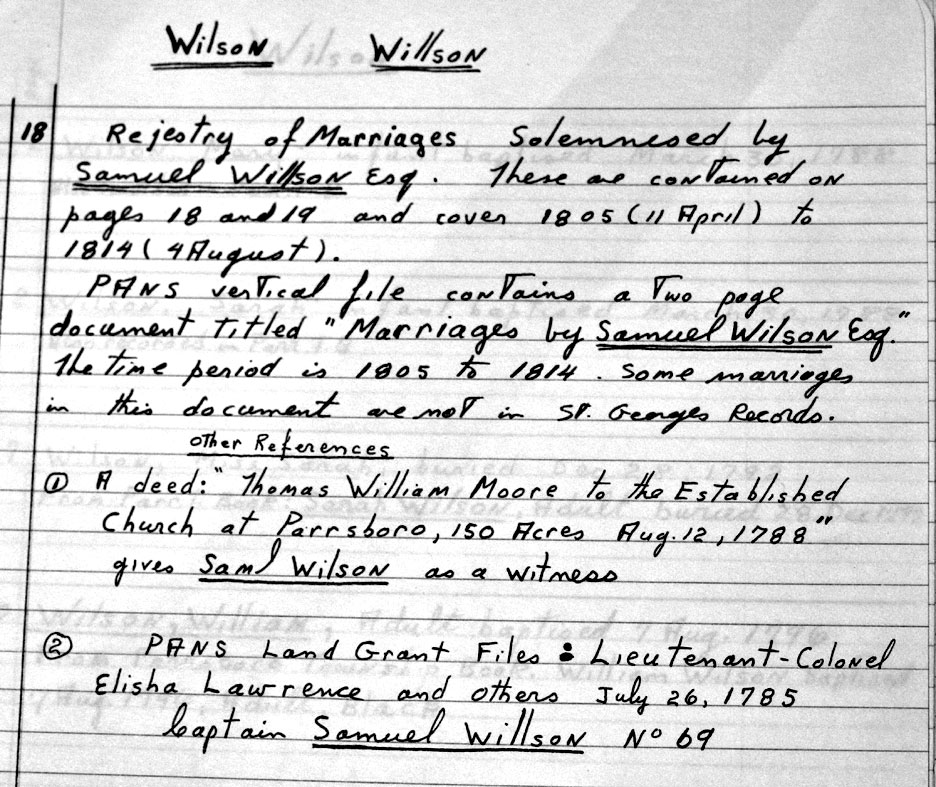 Wilson Willson
18 Rejestry of Marriages Solemnesed by
Samuel Willson Esq. These are contained on
pages 18 and 19 and cover 1805 (11 April) to
1814 (4 August).
PANS vertical file contains a Two page
document Titled "Marriages by Samuel Wilson Esq."
The Time period is 1805 to 1814. Some marriages
in this document are not in St. Georges Records.
Other References
① A deed: "Thomas William Moore to the Established
Church at Parrsboro, 150 Acres Aug. 12, 1788"
gives Saml Wilson as a witness
② PANS Land Grant Files: Lieutenant-Colonel
Elisha Lawrence and others July 26, 1785
Captain Samuel Willson No 69